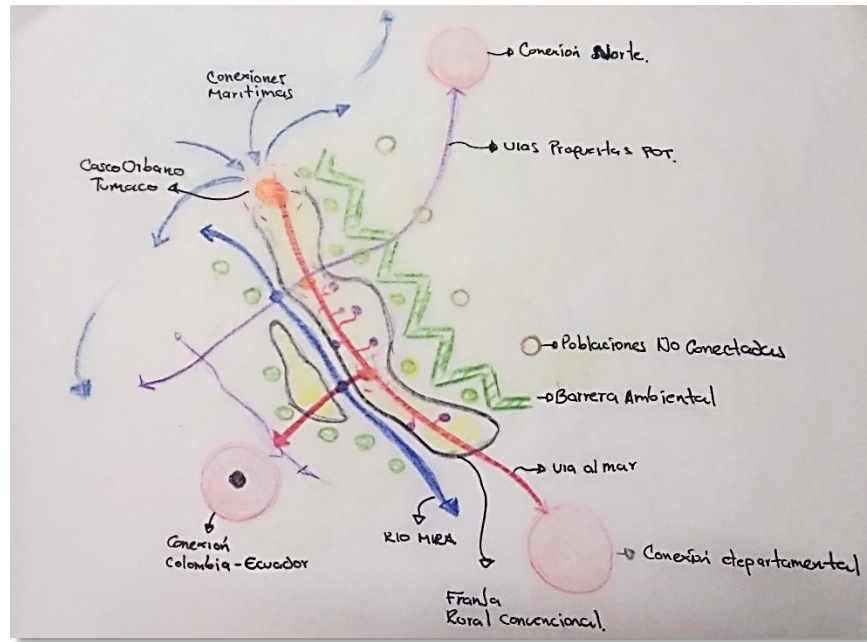 Conexión Norte.
Conexiones
Marítimas
Vias Propuestas POT.
Casco Urbano
Tumaco
Poblaciones No Conectadas
Barrera Ambiental
Via al mar
Conexión
Colombia-Ecuador
RIO MIRA
Conexión departamental
Franja
Rural Convencional.